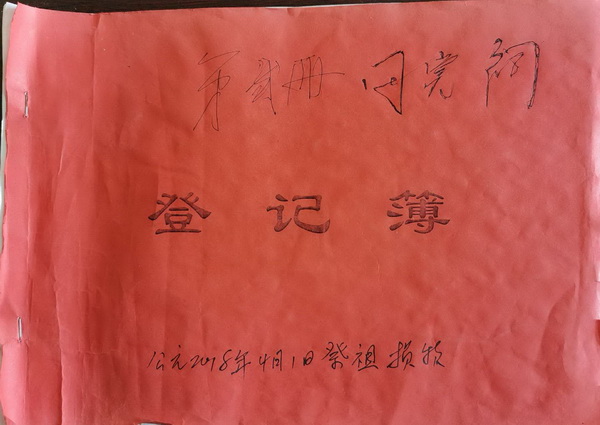 第贰册 闫宪词
登记簿
公元2018年4月1日祭祖捐物